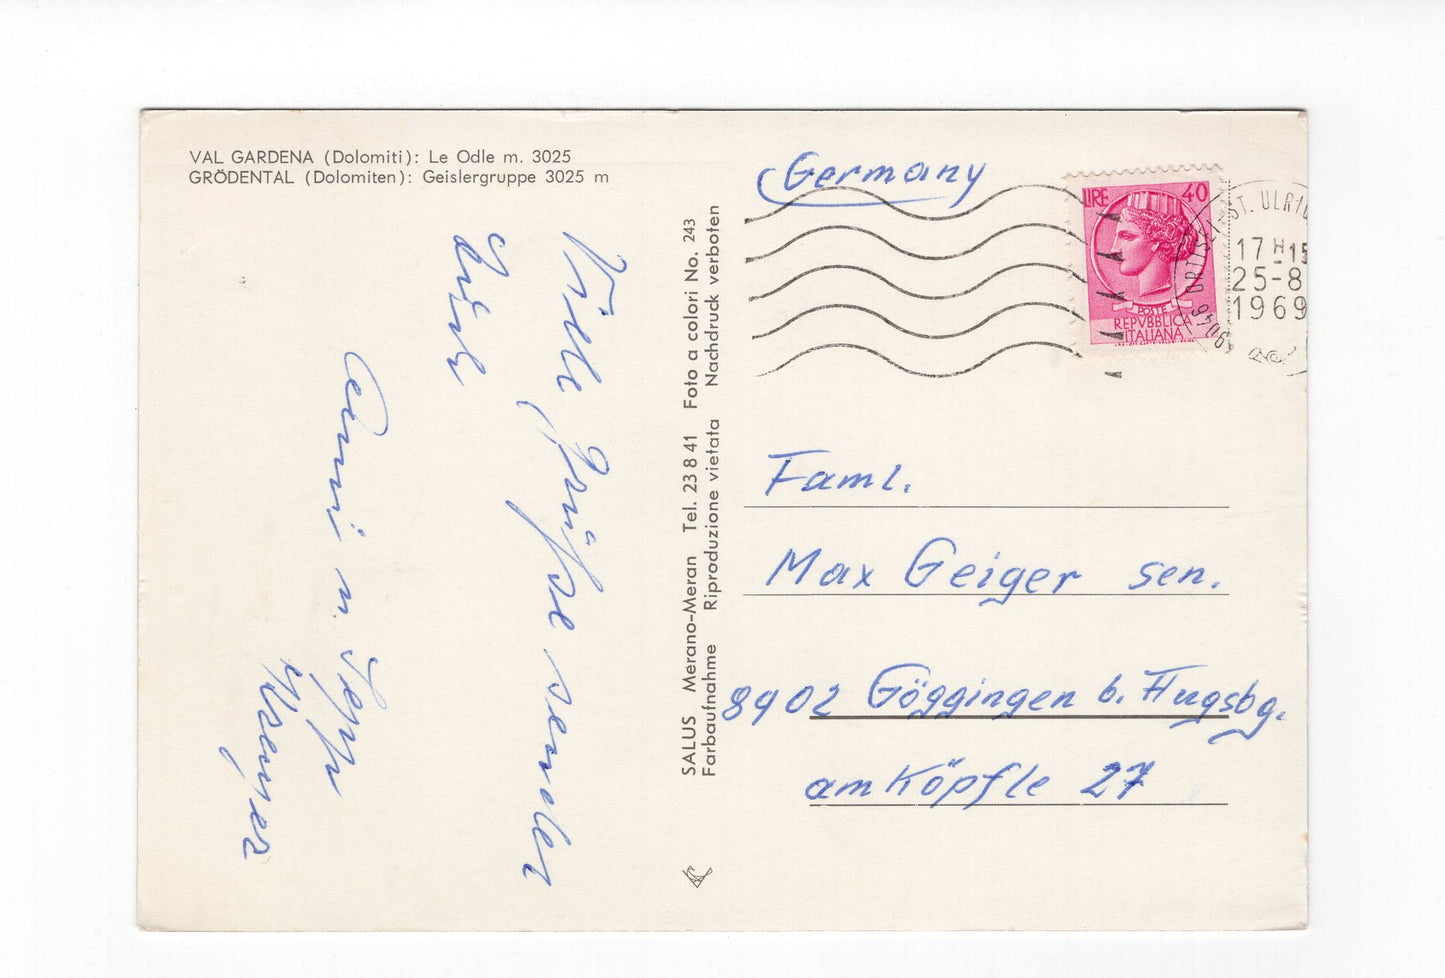 VAL GARDENA (Dolomiti): Le Odle m. 3025
GRÖDENTAL (Dolomiten): Geislergruppe 3025 m
Viele Grüße sendet
Euch
u. Sepp
SALUS Merano-Meran Tel. 23 8 41 Foto a colori No. 243
Farbaufnahme Riproduzione vietata Nachdruck verboten
Germany
LIRE 40
POSTE
REPVBBLICA
ITALIANA
ST. ULRIC
17 H-15
25-8
1969
39046 ORTISEI
Faml.
Max Geiger sen.
8902 Göggingen b. Augsbg.
am Köpfle 27